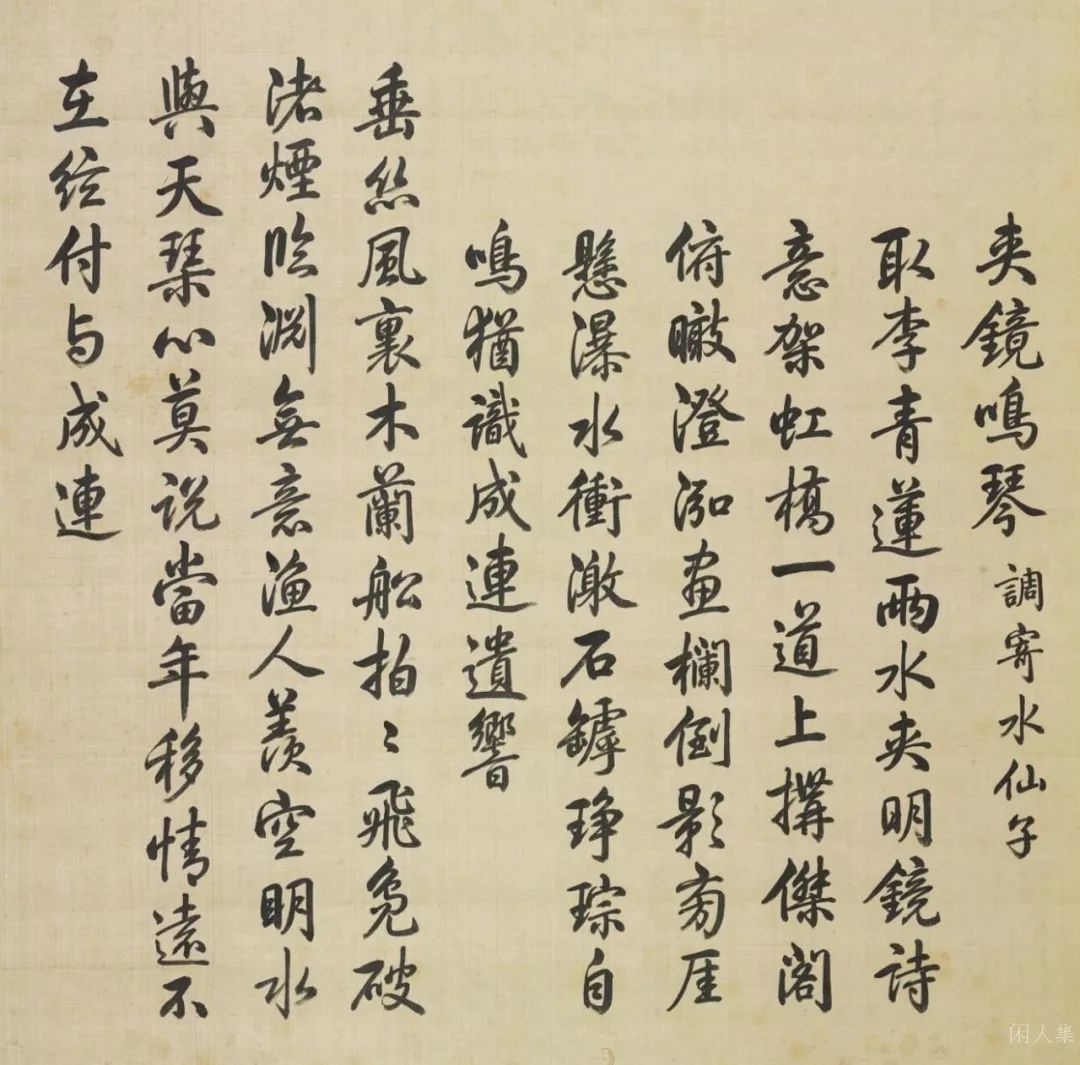 夹鏡鳴琴 調寄水仙子
取李青蓮兩水夹明鏡詩
意架虹橋一道上搆傑閣
俯瞰澄泓畫欄倒影旁厓
懸瀑水衝激石罅琤琮自
鳴猶識成連遺響
垂絲風裏木蘭船拍〻飛鳧破
渚煙臨淵無意漁人羨空明水
與天琴心莫說當年移情遠不
在絃付与成連
闲人集